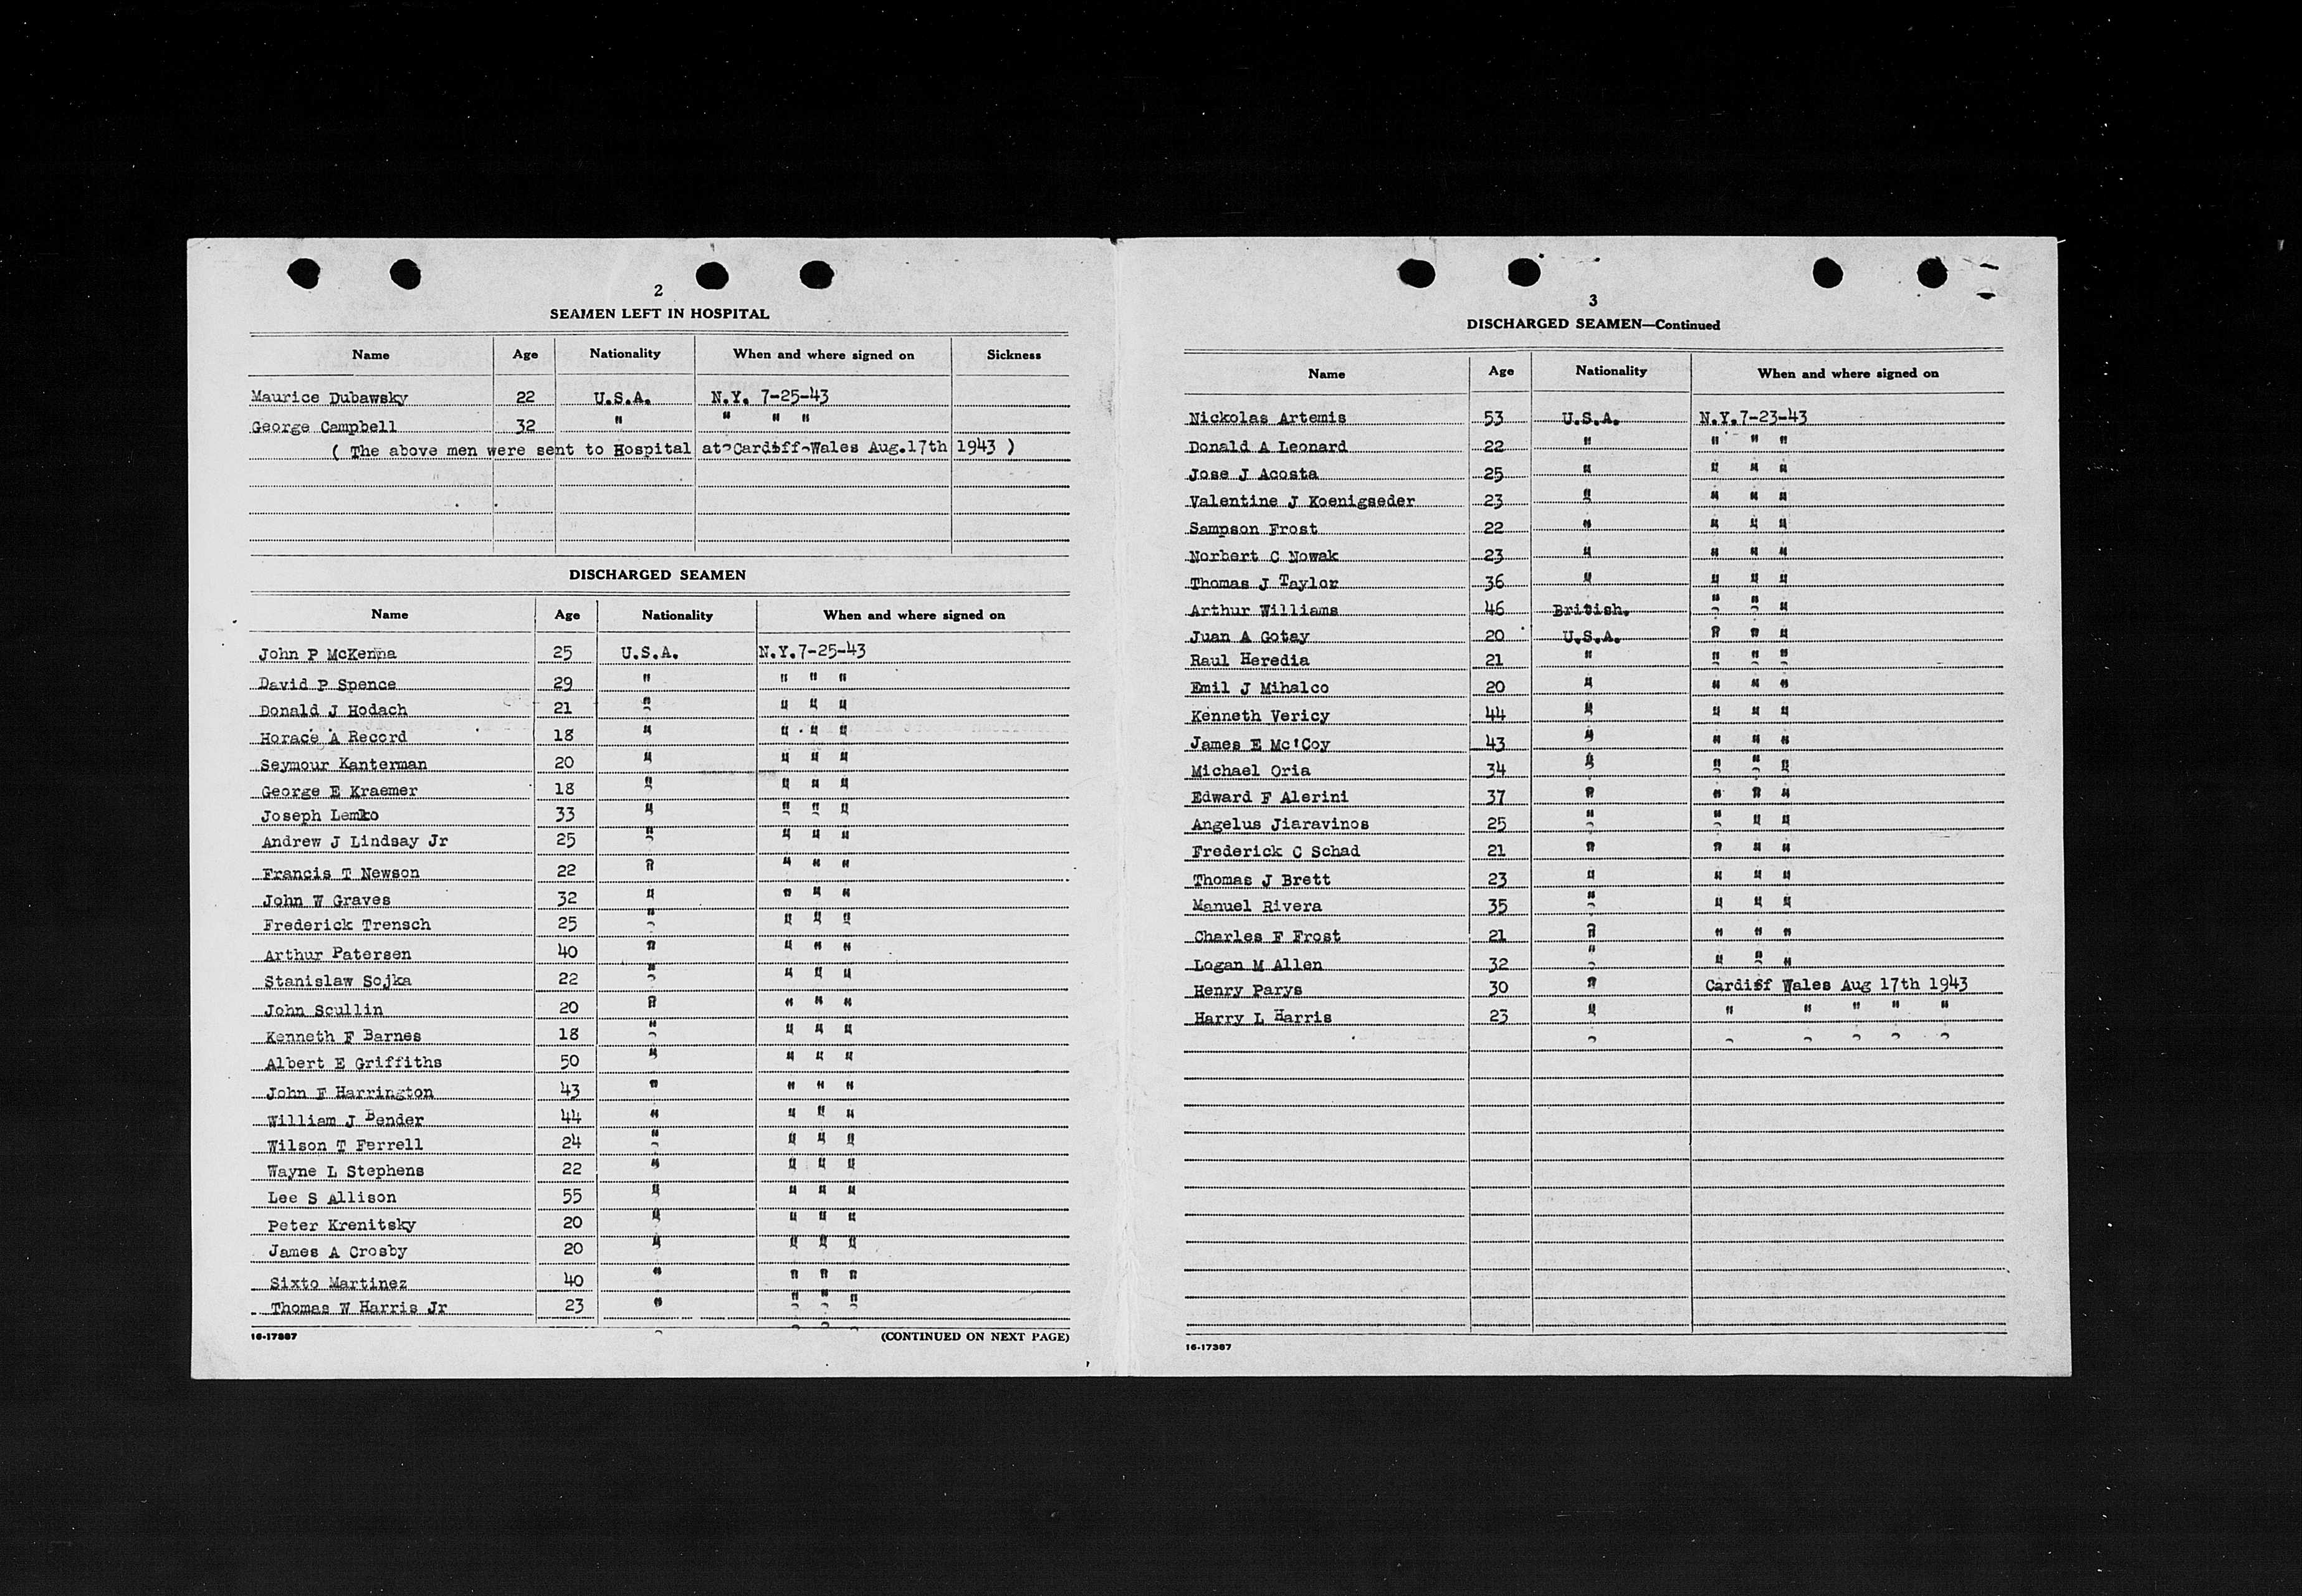 2
SEAMEN LEFT IN HOSPITAL
Name Age Nationality When and where signed on Sickness
Maurice Dubawsky 22 U.S.A. N.Y. 7-25-43
George Campbell 32 " " " "
( The above men were sent to Hospital at Cardiff Wales Aug.17th 1943 )
DISCHARGED SEAMEN
Name Age Nationality When and where signed on
John P McKenna 25 U.S.A. N.Y.7-25-43
David P Spence 29 " " " "
Donald J Hodach 21 " " " "
Horace A Record 18 " " " "
Seymour Kanterman 20 " " " "
George E Kraemer 18 " " " "
Joseph Lemko 33 " " " "
Andrew J Lindsay Jr 25 " " " "
Francis T Newson 22 " " " "
John W Graves 32 " " " "
Frederick Trensch 25 " " " "
Arthur Patersen 40 " " " "
Stanislaw Sojka 22 " " " "
John Scullin 20 " " " "
Kenneth F Barnes 18 " " " "
Albert E Griffiths 50 " " " "
John F Harrington 43 " " " "
William J Bender 44 " " " "
Wilson T Ferrell 24 " " " "
Wayne L Stephens 22 " " " "
Lee S Allison 55 " " " "
Peter Krenitsky 20 " " " "
James A Crosby 20 " " " "
Sixto Martinez 40 " " " "
Thomas W Harris Jr 23 " " " "
16-17387 (CONTINUED ON NEXT PAGE)
3
DISCHARGED SEAMEN—Continued
Name Age Nationality When and where signed on
Nickolas Artemis 53 U.S.A. N.Y.7-23-43
Donald A Leonard 22 " " " "
Jose J Acosta 25 " " " "
Valentine J Koenigseder 23 " " " "
Sampson Frost 22 " " " "
Norbert C Nowak 23 " " " "
Thomas J Taylor 36 " " " "
Arthur Williams 46 British. " " "
Juan A Gotay 20 U.S.A. " " "
Raul Heredia 21 " " " "
Emil J Mihalco 20 " " " "
Kenneth Vericy 44 " " " "
James E Mc'Coy 43 " " " "
Michael Oria 34 " " " "
Edward F Alerini 37 " " " "
Angelus Jiaravinos 25 " " " "
Frederick C Schad 21 " " " "
Thomas J Brett 23 " " " "
Manuel Rivera 35 " " " "
Charles F Frost 21 " " " "
Logan M Allen 32 " " " "
Henry Parys 30 " Cardiff Wales Aug 17th 1943
Harry L Harris 23 " " " " " "
16-17387